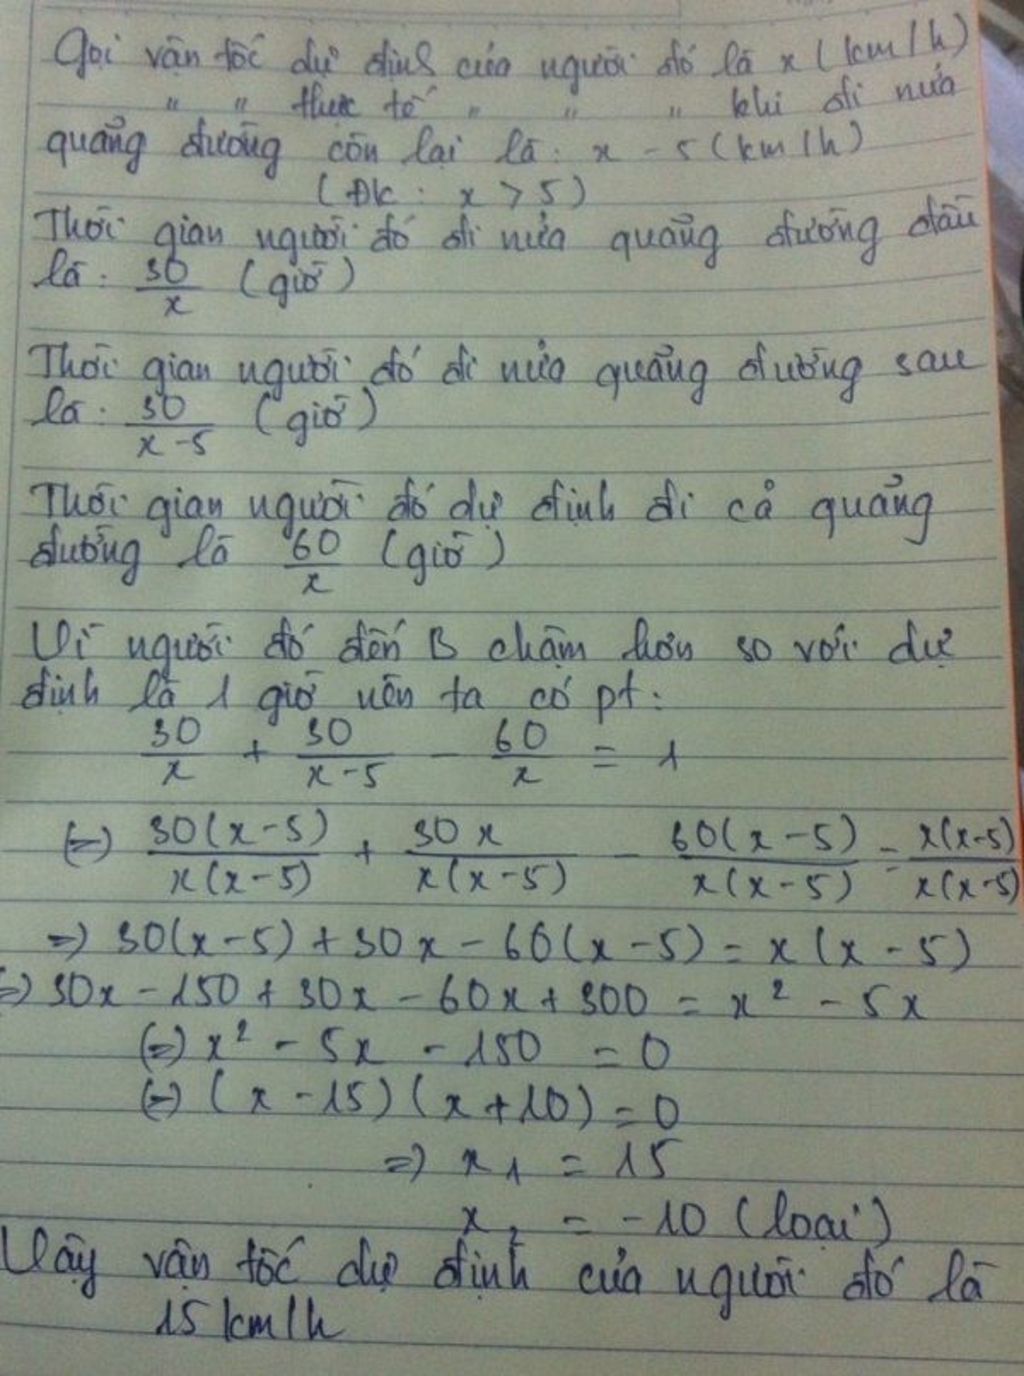 Gọi vận tốc dự định của người đó là x (km/h)
" " thực tế " " " khi đi nửa
quãng đường còn lại là: x - 5 (km/h)
(ĐK: x > 5)
Thời gian người đó đi nửa quãng đường đầu
là: 30/x (giờ)
Thời gian người đó đi nửa quãng đường sau
là: 30/(x-5) (giờ)
Thời gian người đó dự định đi cả quãng
đường là 60/x (giờ)
Vì người đó đến B chậm hơn so với dự
định là 1 giờ nên ta có pt:
30/x + 30/(x-5) - 60/x = 1
(=) 30(x-5)/x(x-5) + 30x/x(x-5) - 60(x-5)/x(x-5) = x(x-5)/x(x-5)
=) 30(x-5) + 30x - 60(x-5) = x(x-5)
=) 30x - 150 + 30x - 60x + 300 = x² - 5x
(=) x² - 5x - 150 = 0
(=) (x-15)(x+10) = 0
=) x₁ = 15
x₂ = -10 (loại)
Vậy vận tốc dự định của người đó là
15 km/h